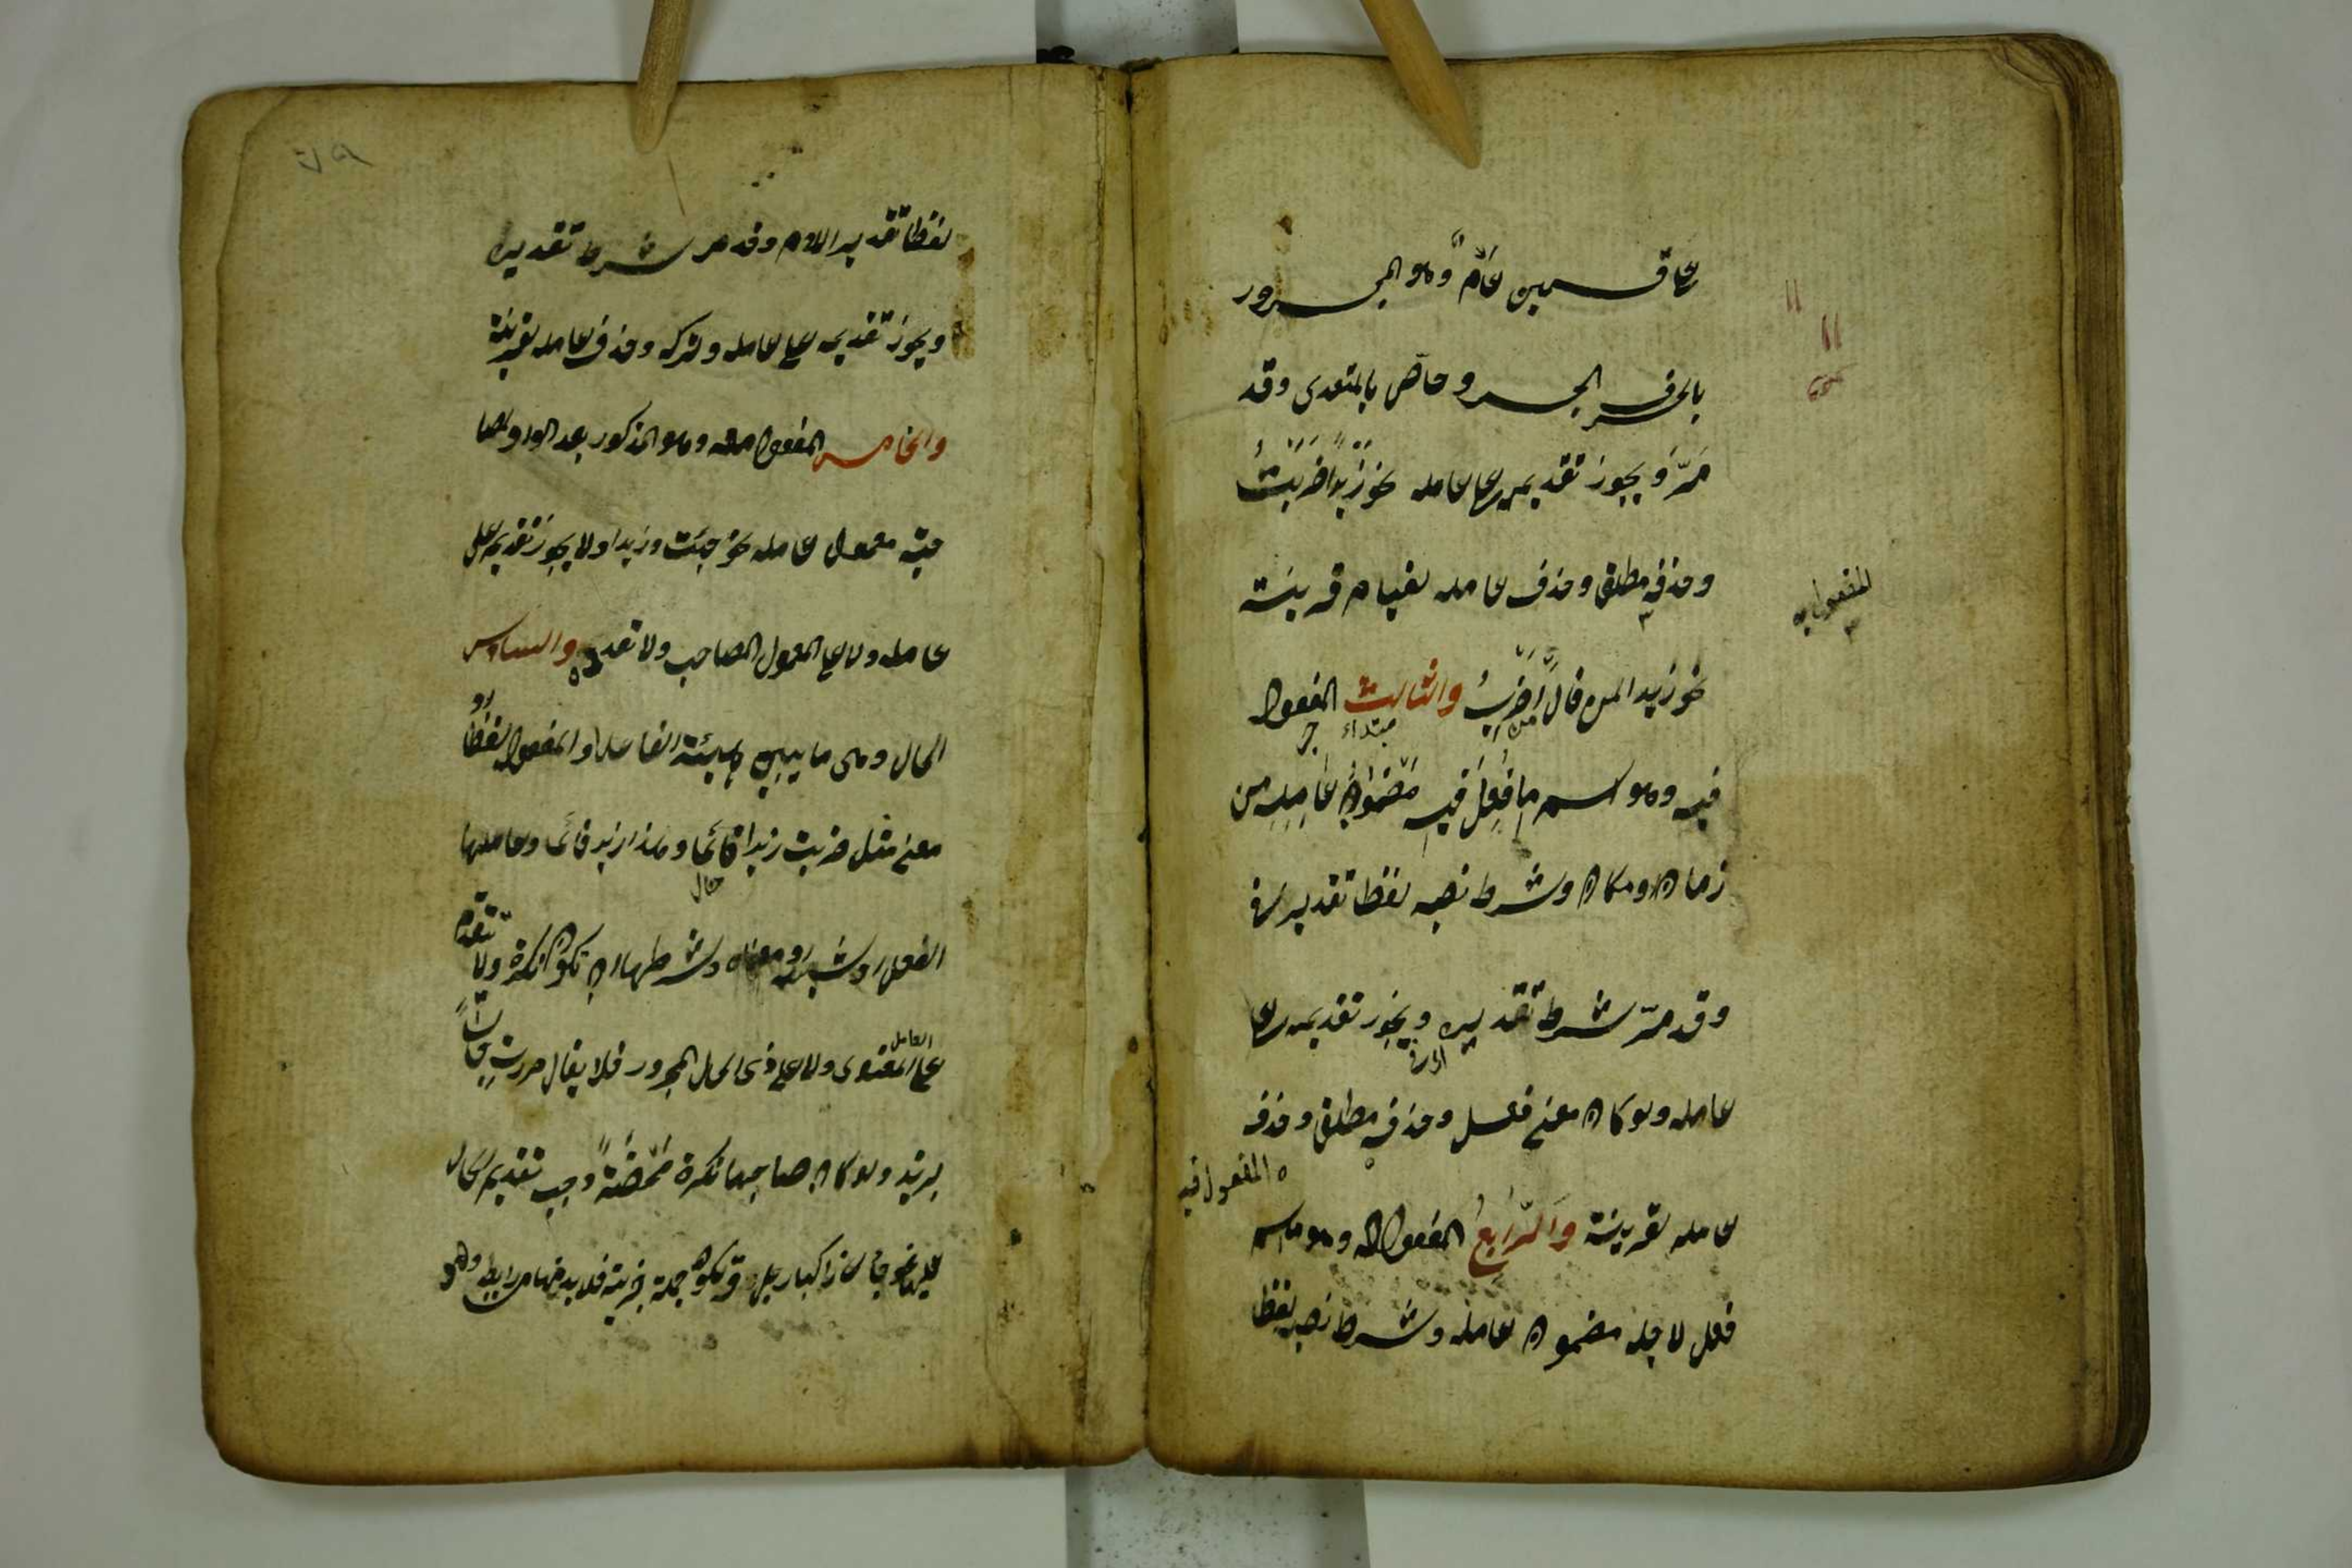 على قسمين عامٌّ وهو المجرور
بالحرف الجر وخاصّ بالمتعدى وقد
مَرَّ وَيجوز تقديمه على عامله نحو زَيْداً ضَرَبْتُ
وحذفه مطلقا وحذف عامله لقيام قرينة
المفعول به
نحو زيدا لمن قال أَضْرِبُ والثالث المفعول
مبتداء
فيه وهو اسم ما فُعِلَ فيه مَضْمُونُ عَامِلِه من
زمان ومكان وشرط نصبه لفظا تقدير فى
وقد مرّ شرط تقديره ويجوز تقديمه على
عامله ولو كان معنى فعل وحذفه مطلقا وحذف
المفعول فيه
عامله لقرينة وَالرَّابعُ المفعول له وهو اسم
فعل لاجله مضمون عامله وشرط نصبه لفظا
لفظا تقدير اللام وقد مر شرط تقديره
ويجوز تقديمه على عامله وتركه وحذف عامله لقرينة
والخامس المفعول معه وهو المذكور بعد الواو لمصا
حبته معمول عامله نحو جئت وزيدا ولا يجوز تقديمه على
عامله ولا على المعمول المصاحب ولا تعدده والسادس
الحال وهى ما يبين هيئة الفاعل او المفعول به لفظا او
معنى مثل ضربت زيدا قائما وهذا زيد قائما وعاملها
حال
الفعل او شبهه او معناه وشرطها ان تكون نكرة ولا تتقدّم
العامل
على المعنوى ولا على ذى الحال المجرور فلا يقال مررت جالساً
بزيد ولو كان صاحبها نكرة مَحْضَةً وجب تقديم الحال
عليها نحو جاءنى راكبا رجل وقد تكون جملة خبرية فلا بد فيها من رابط وهو